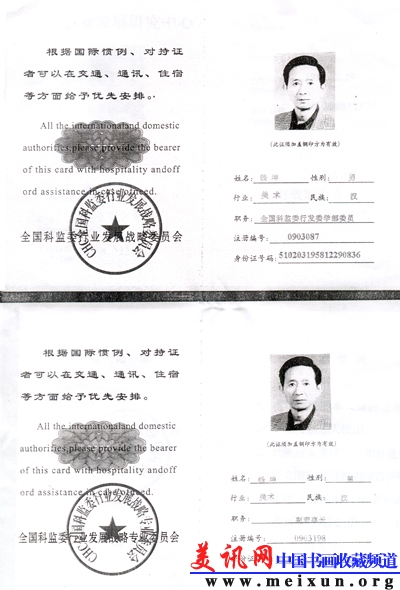 根据国际惯例、对持证
者可以在交通、通讯、住宿
等方面给予优先安排。
All the internationaland domestic
authorities,please provide the bearer
of this card with hospitality andoff
ord assistance in case ofneed.
全国科监委行业发展战略委员会
CHC全国科监委行业发展战略委员会
(此证须加盖钢印方为有效)
姓名: 徐坤 性别: 男
行业: 美术 民族: 汉
职务: 全国科监委行发委学部委员
注册编号: 0903087
身份证号码: 510203195812290836
根据国际惯例、对持证
者可以在交通、通讯、住宿
等方面给予优先安排。
All the internationaland domestic
authorities,please provide the bearer
of this card with hospitality andoff
ord assistance in case ofneed.
全国科监委行业发展战略专业委员会
CHC全国科监委行业发展战略专业委员会
(此证须加盖钢印方为有效)
姓名: 徐坤 性别: 男
行业: 美术 民族: 汉
职务:
注册编号: 0903198
身份证
美讯网 中国书画收藏频道
www.meixun.org